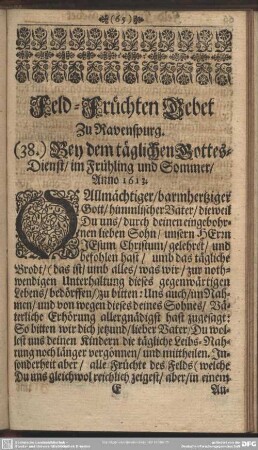 (65)
Feld-Früchten Gebet
Zu Ravenspurg.
(38.) Bey dem täglichen Gottes-
Dienst/ im Frühling und Sommer/
Anno 1613.
O Allmächtiger/ barmhertziger
Gott/ himmlischer Vater/ dieweil
Du uns/ durch deinen eingebohr-
nen lieben Sohn/ unsern HErrn
JEsum Christum/ gelehret/ und
befohlen hast/ umb das tägliche
Brodt/ (das ist/ umb alles/ was wir/ zur noth-
wendigen Unterhaltung dieses gegenwärtigen
Lebens/ bedörffen/ zu bitten: Uns auch/ im Nah-
men/ und von wegen dieses deines Sohnes/ Vä-
terliche Erhörung allergnädigst hast zugesagt:
So bitten wir dich jetzund/ lieber Vater: Du wol-
lest uns deinen Kindern die tägliche Leibs-Nah-
rung noch länger vergönnen/ und mittheilen. In-
sonderheit aber/ alle Früchte des Felds/ (welche
Du uns gleichwol reichlich zeigest/ aber/ in einem
E An-